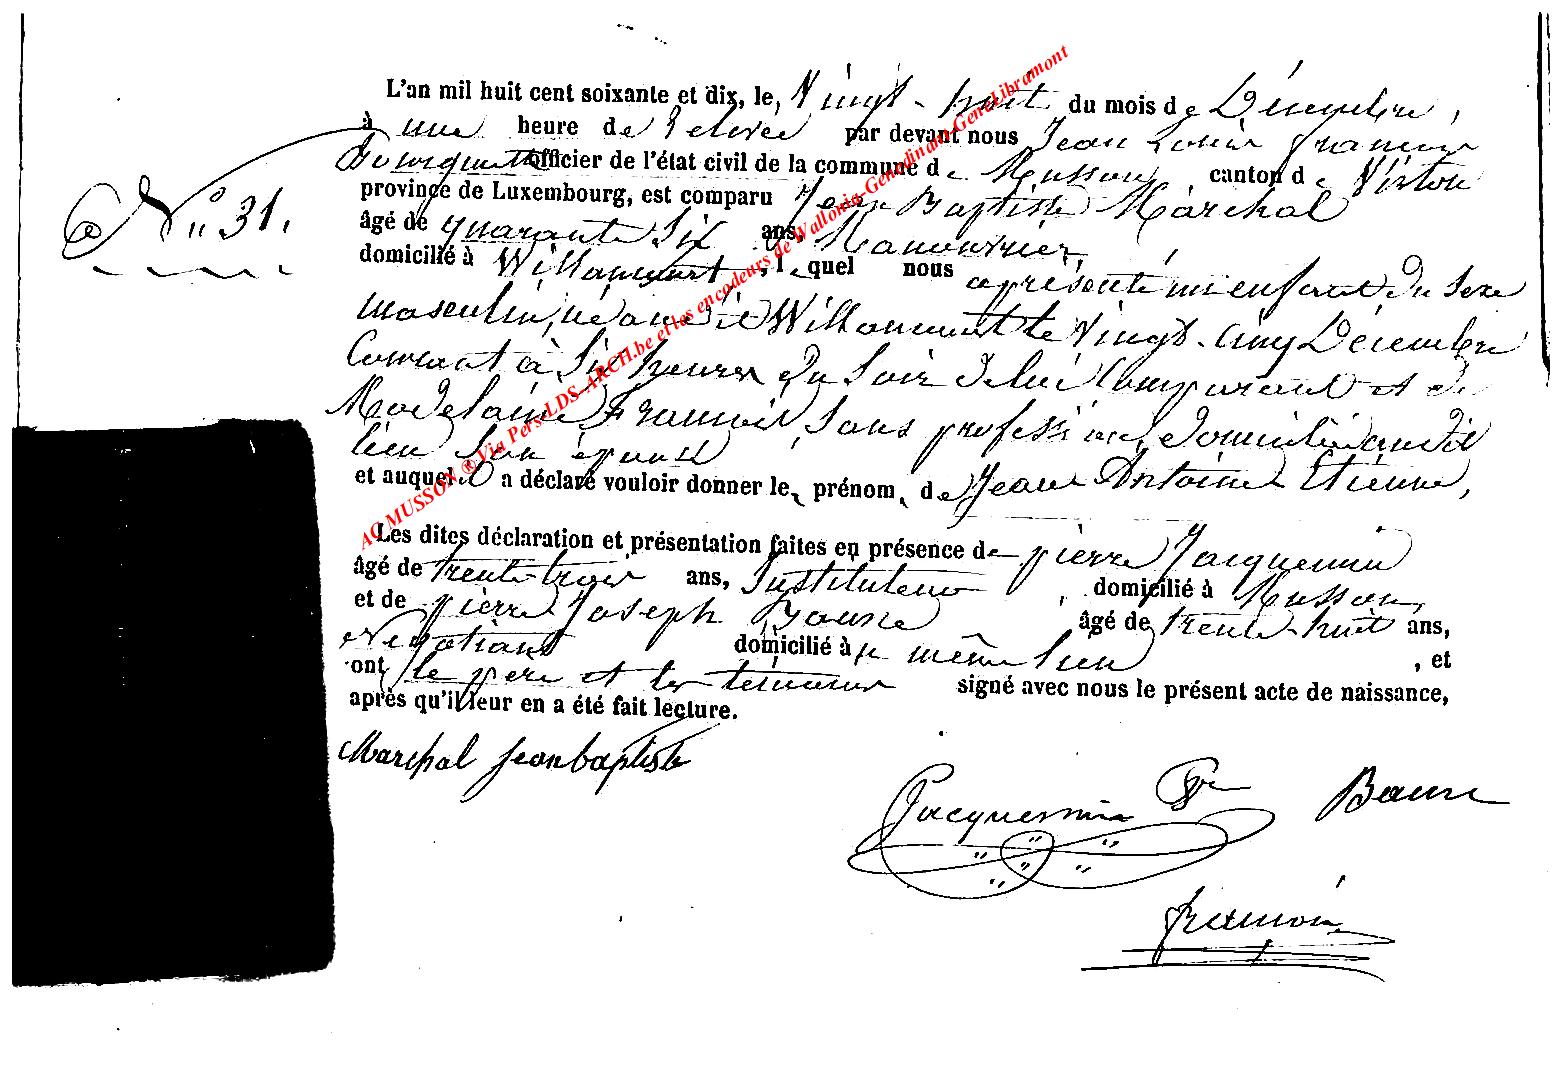 L'an mil huit cent soixante et dix, le, Vingt-huit du mois de Décembre,
à une heure de relevée par devant nous Jean Louis François
officier de l'état civil de la commune de Musson canton de Virton
N° 31.
province de Luxembourg, est comparu Jean Baptiste Maréchal
âgé de quarante Six ans, Manouvrier,
domicilié à Willancourt, lequel nous a présenté un enfant du Sexe
masculin, né à Willancourt le Vingt-Cinq Décembre
Courant à Six heures du Soir de lui Comparant et de
Madelaine François, Sans profession, domiciliée au dit
lieu Son épouse
et auquel il a déclaré vouloir donner le, prénom, de Jean Antoine Etienne,
Les dites déclaration et présentation faites en présence de pierre Jacquemin
âgé de trente-trois ans, Instituteur, domicilié à Musson,
et de pierre Joseph Baune âgé de trente-huit ans,
domicilié à même lieu, et
ont le père et les témoins signé avec nous le présent acte de naissance,
après qu'il leur en a été fait lecture.
Marchal jean baptiste
Jacquemin Pre Baune
françois
AC MUSSON ® Via Pers-LDS-ARCH.be et les encodeurs de Wallonia-Genedinant-GeneLibramont